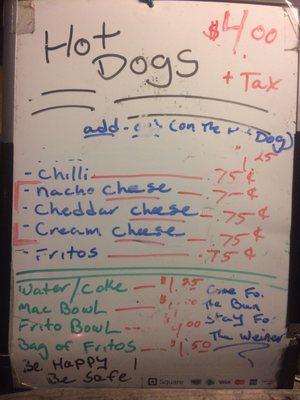 Hot Dogs
$4.00
+ Tax
add-
(on the
Dog)
1.25
- Chilli .75¢
- Nacho cheese 75¢
- Cheddar cheese .75¢
- Cream cheese .75¢
- Fritos .75¢
Water/Coke $1.25
Mac Bowl
Frito Bowl 4.00
Bag of Fritos $1.50
Come Fo.
The Bun
Stay Fo.
The Weiner
Be Happy !
Be Safe
Square